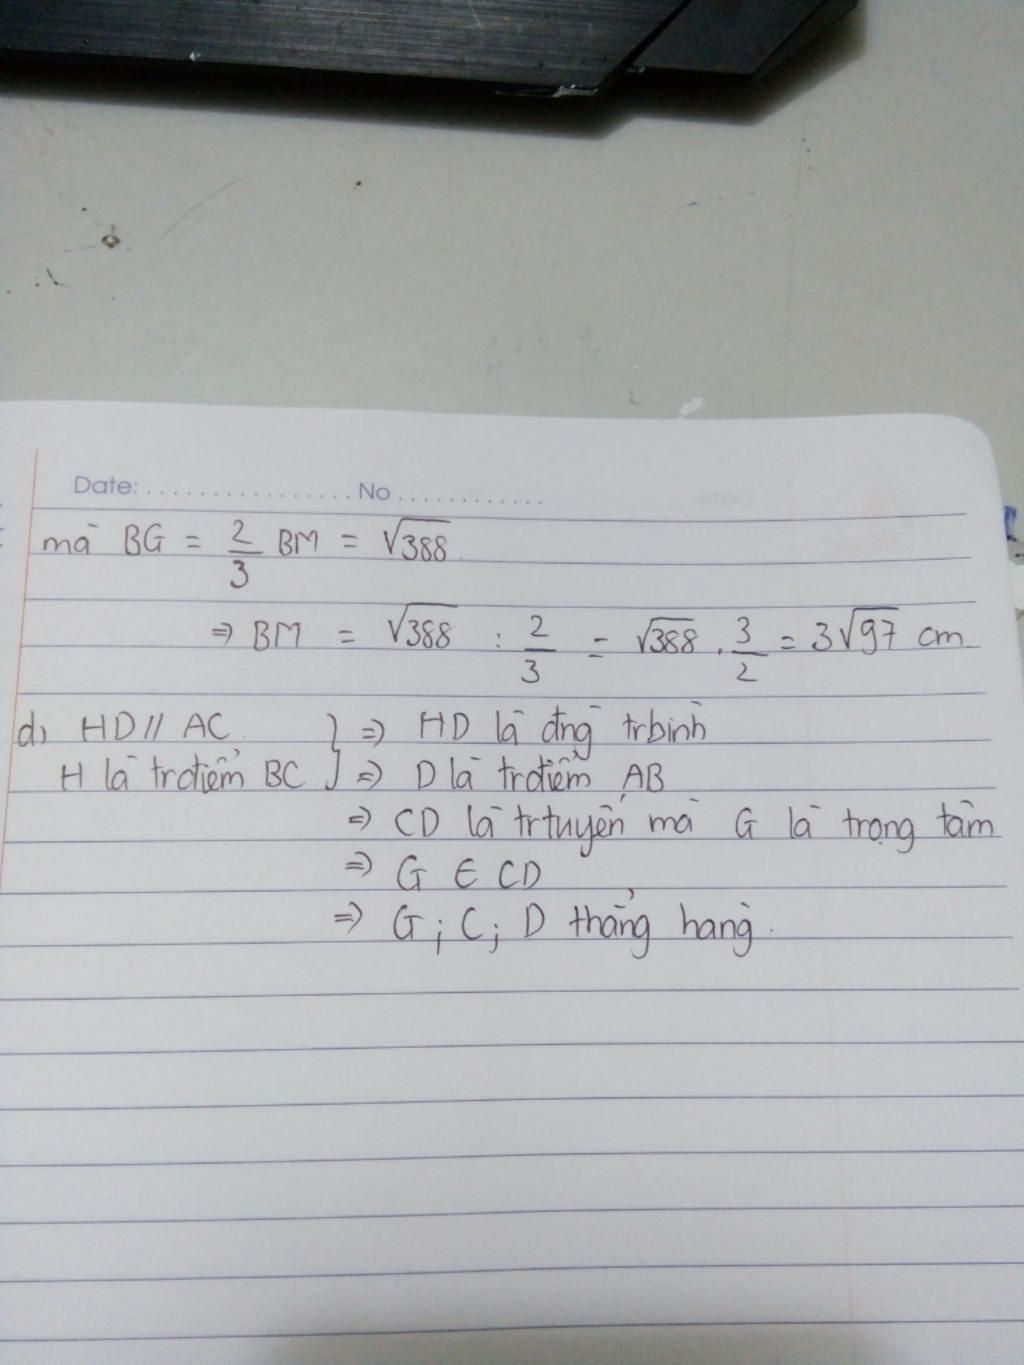 Date: ................. No .............
mà BG = 2/3 BM = √388
⇒ BM = √388 : 2/3 = √388 . 3/2 = 3√97 cm
d, HD // AC } ⇒ HD là đng trbình
H là trđiểm BC } ⇒ D là trđiểm AB
⇒ CD là trtuyến mà G là trọng tâm
⇒ G ∈ CD
⇒ G ; C ; D thẳng hàng.